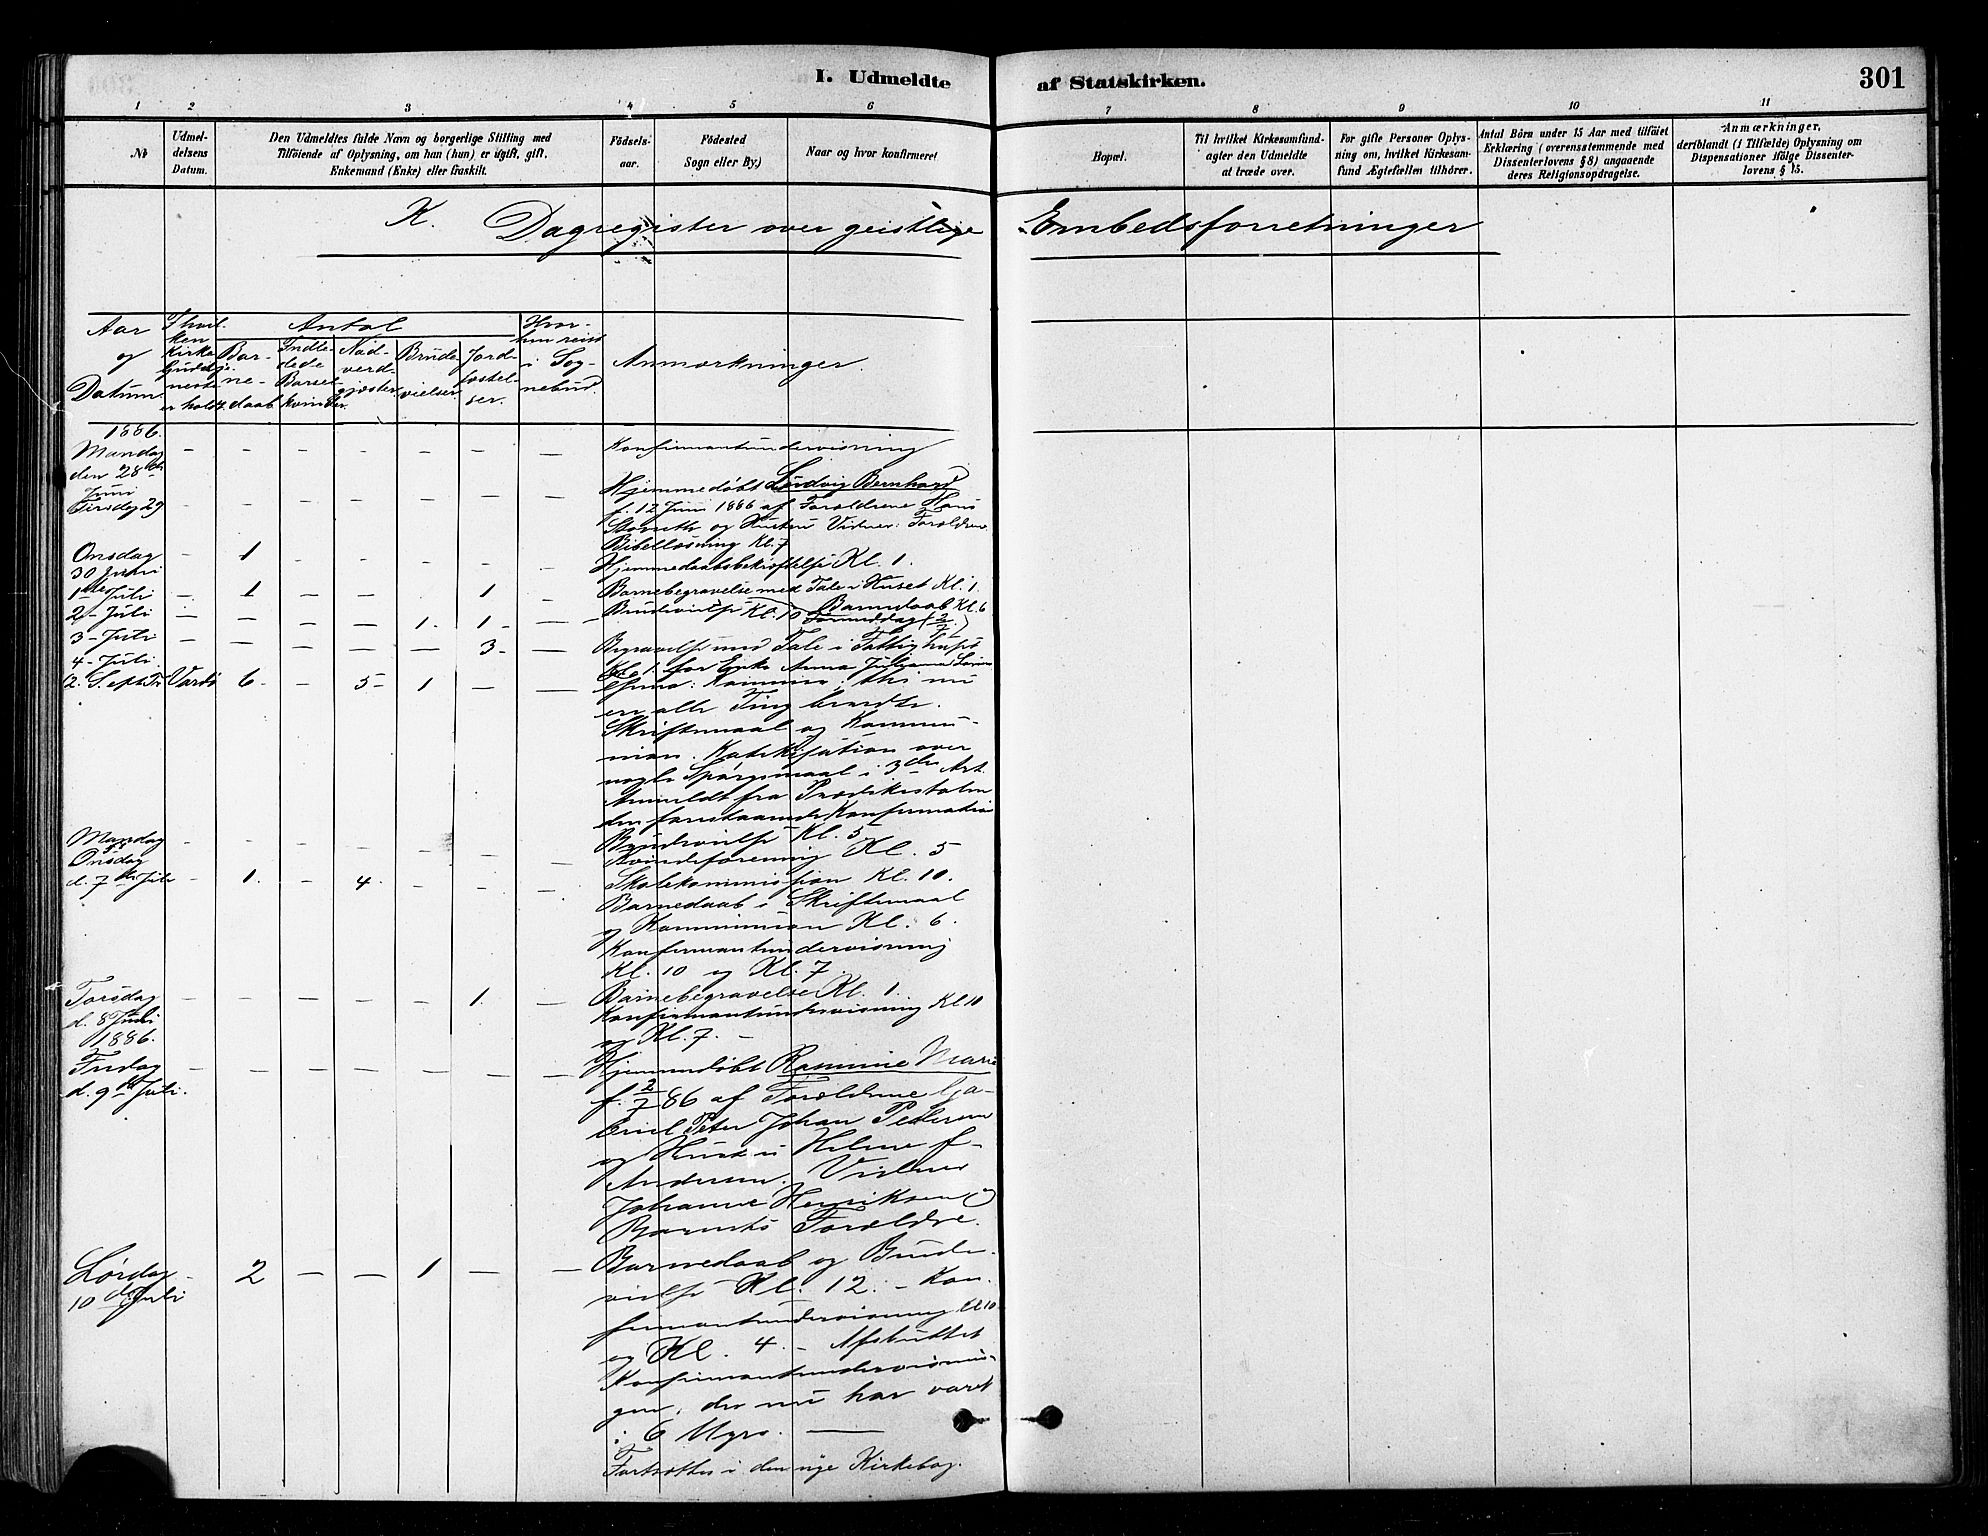 I. Udmeldte
af Statskirken.
301
1 2 3 4 5 6 7 8 9 10 11
№
Udmel-
delsens
Datum.
Den Udmeldtes fulde Navn og borgerlige Stilling med
Tilføiende af Oplysning, om han (hun) er ugift, gift,
Enkemand (Enke) eller fraskilt.
Fødsels-
aar.
Fødested
Sogn eller By)
Naar og hvor konfirmeret
Bopæl.
Til hvilket Kirkesamfund-
agter den Udmeldte
at træde over.
For gifte Personer Oplys-
ning om, hvilket Kirkesam-
fund Ægtefællen tilhører.
Antal Børn under 15 Aar med tilføiet
Erklæring (overensstemmende med
Dissenterlovens § 8) angaaende
deres Religionsopdragelse.
Anmærkninger,
deriblandt (i Tilfælde) Oplysning om
Dispensationer ifølge Dissenter-
lovens § 15.
K. Dagregister over geistlige Embedsforretninger
Aar
og
Datum.
I hvil-
ken
Kirke
Gudstj-
neste
er holdt.
Antal
Bar-
ne-
daab
Indle-
dede
Barsel
kvinder.
Nad-
verd-
gjæster.
Brude
vielser.
Jord-
fæstel-
ser.
Hvor-
hen reist
i Sog-
nebud.
Anmærkninger.
1886.
Mandag - - - - - - -
den 28de
Juni
Konfirmantundervisning
Tirsdag 29 - - - - - - -
Hjemmedøbt Lŭdvig Bernhard
f. 12 Juni 1886 af Forældrene Hans
og Hustru Vidner: Forældrene
Bibellæsning Kl. 7
Onsdag - 1 - - - - -
30 Juni
Hjemmedaabsbekræftelse Kl. 1.
1ste Juli - 1 - - 1 -
Barnebegravelse med Tale i Huset Kl. 1
Barnedaab Kl. 6
2 - Juli - - - - 1. 1 - -
Brudevielse Kl. 10 Formiddag (2/7)
3 - Juli - - - - - 3 - -
Begravelse med Tale i Fattighuset
4 - Juli
Kl. 1 for Enke Anna Juliana
2. S. eft. Tr. Vardø 6 - - 5 - 1 - -
thi nu
er alle Ting
Skriftemaal og Kommu-
nion. Katekisation over
nogle Spørgsmaal i 3die Art.
Anmeldt fra Prædikestolen
den forestaaende Konfirmation
Brudevielse Kl. 5
Mandag - - - - - - -
Kvindeforening Kl. 5
Onsdag
d. 7de Juli - 1. - 4. - - -
Skolekommission Kl. 10.
Barnedaab i Skriftemaal
og Kommunion Kl. 6.
Konfirmantundervisning
Kl. 10 og Kl. 7.
Torsdag - - - - - 1. -
d. 8 Juli
1886.
Barnebegravelse Kl. 1.
Konfirmantundervisning Kl 10
og Kl. 7. -
Fredag - - - - - - -
d. 9de Juli.
Hjemmedøbt Rasmine Marie
f. 2/7 86 af Forældrene Ga-
briel Peter Johan Pedersen
og Hustru Helene f.
Andersen. Vidner
Johanne Henriksen og
Barnets Forældre.
Lørdag - 2 - - 1 - -
10de Juli
Barnedaab og Brude-
vielse Kl. 12. - Kon-
firmantundervisning Kl 10
og Kl. 4. - Afsluttet
Konfirmantundervisnin-
gen, der nu har varet
i 6 Uger. -
Fortsættes i den nye Kirkebog.